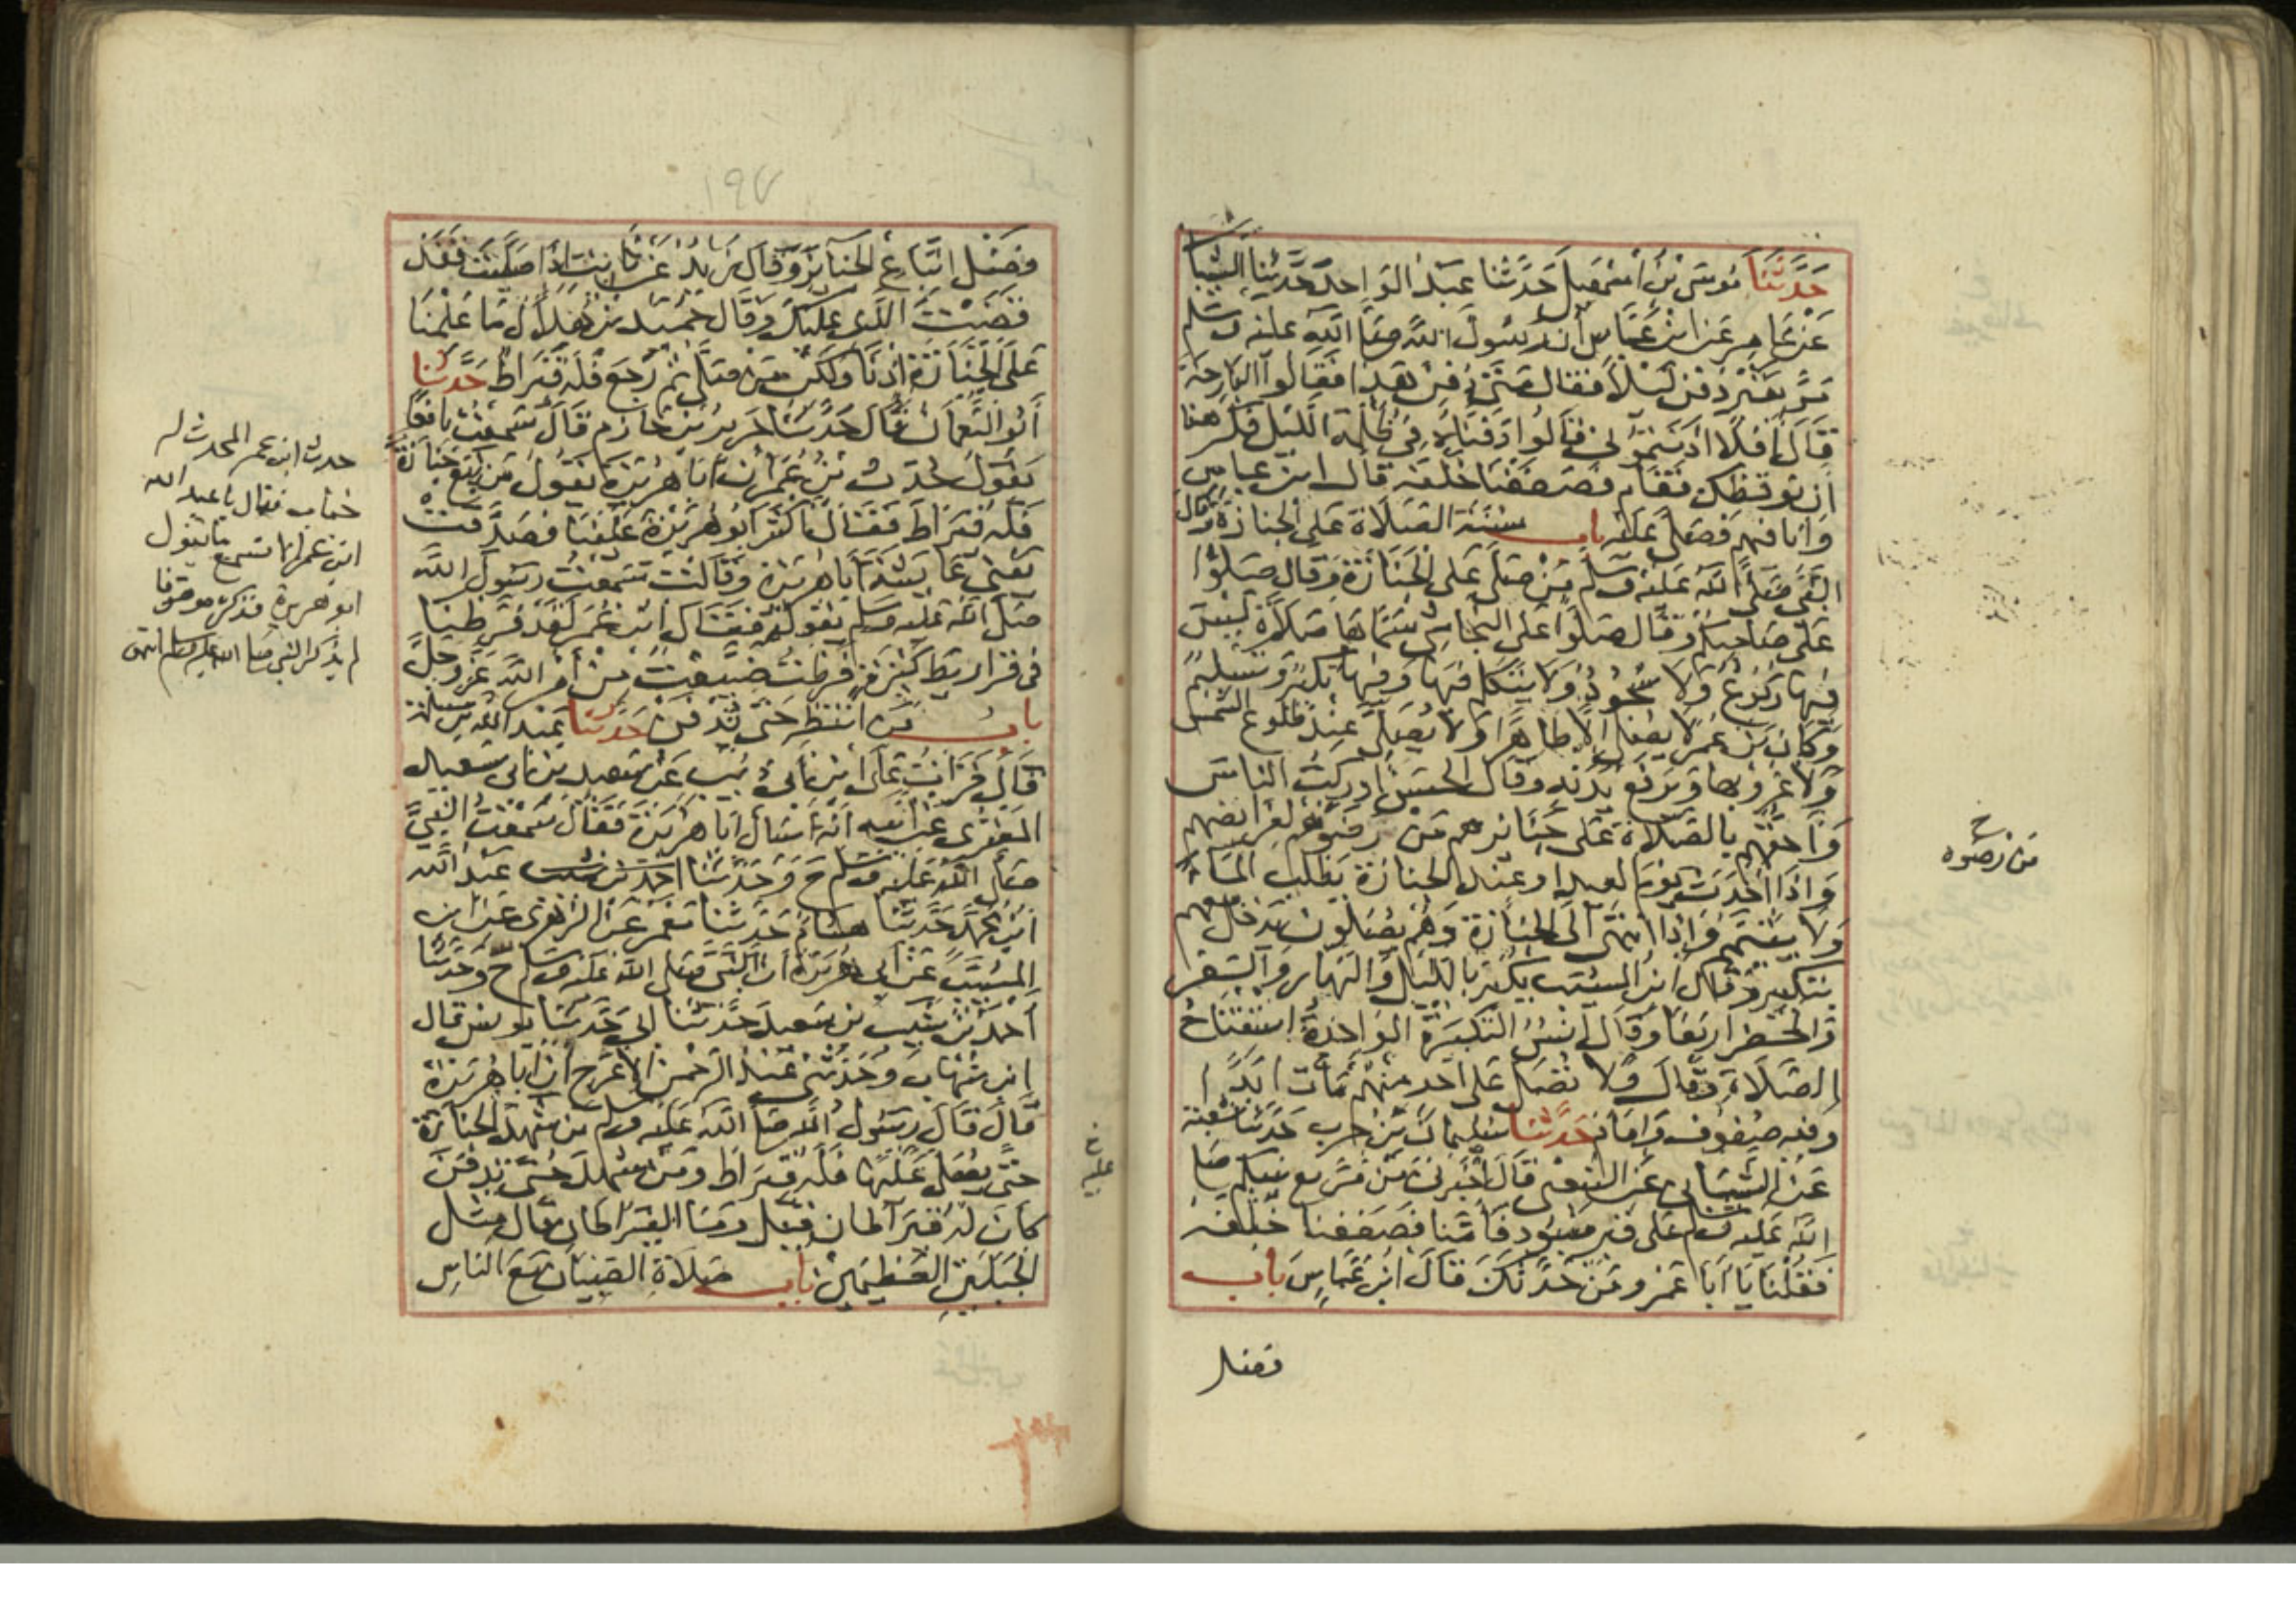 حدثنا موسى بن اسمعيل حدثنا عبد الواحد حدثنا الشيبانى
عن عامر عن ابن عباس أن رسول الله صلى الله عليه وسلم
مر بقبر دفن ليلا فقال متى دفن هذا فقالوا البارحة
قال أفلا اذنتمونى قالوا دفناه فى ظلمة الليل فكرهنا
ان نوقظك فقام فصففنا خلفه قال ابن عباس
وانا فيهم فصلى عليه باب سنة الصلاة على الجنازة وقال
النبى صلى الله عليه وسلم من صلى على الجنازة وقال صلوا
على صاحبكم وقال صلوا على النجاشى سماها صلاة ليس
فيها ركوع ولا سجود ولا يتكلم فيها وفيها تكبير وتسليم
وكان بن عمر لا يصلى إلا طاهرا ولا يصلى عند طلوع الشمس
ولا غروبها ويرفع يديه وقال الحسن أدركت الناس
وأحقهم بالصلاة على جنائزهم من رضوهم لفرائضهم
واذا أحدث يوم العيد او عند الجنازة يطلب الماء
ولا يتيمم واذا انتهى الى الجنازة وهم يصلون يدخل معهم
بتكبيرة وقال ابن المسيب يكبر بالليل والنهار والسفر
والحضر اربعا وقال أنس التكبيرة الواحدة استفتاح
الصلاة وقال ولا تصل على احد منهم مات ابدا
وفيه صفوف وامام حدثنا سليمان بن حرب حدثنا شعبة
عن الشيبانى عن الشعبى قال أخبرنى من مر مع نبيكم صلى
الله عليه وسلم على قبر منبوذ فأمنا فصففنا خلفه
فقلنا يا أبا عمرو من حدثك قال ابن عباس باب
فضل
من رضوه
١٩٧
فضل اتباع الجنائز وقال زيد بن ثابت اذا صليت فقد
قضيت الذى عليك وقال حميد بن هلال ما علمنا
على الجنازة إذنا ولكن من صلى ثم رجع فله قيراط حدثنا
أبو النعمان قال حدثنا جرير بن حازم قال سمعت نافعا
يقول حدث بن عمر أن أبا هريرة يقول من تبع جنازة
فله قيراط فقال أكثر أبو هريرة علينا فصدقت
يعنى عائشة أبا هريرة وقالت سمعت رسول الله
صلى الله عليه وسلم يقوله فقال ابن عمر لقد فرطنا
فى قراريط كثيرة فرطت ضيعت من أمر الله عز وجل
باب من انتظر حتى تدفن حدثنا عبد الله بن مسلمة
قال قرأت على ابن أبى ذئب عن سعيد بن أبى سعيد
المقبرى عن أبيه أنه سأل أبا هريرة فقال سمعت النبى
صلى الله عليه وسلم ح وحدثنا عبد الله
ابن محمد حدثنا هشام حدثنا معمر عن الزهرى عن ابن
المسيب عن أبى هريرة أن النبى صلى الله عليه وسلم ح وحدثنا
أحمد بن شبيب بن سعيد حدثنا أبى حدثنا يونس قال
ابن شهاب وحدثنى عبد الرحمن الأعرج أن أبا هريرة
قال قال رسول الله صلى الله عليه وسلم من شهد الجنازة
حتى يصلى عليها فله قيراط ومن شهد حتى تدفن
كان له قيراطان قيل وما القيراطان قال مثل
الجبلين العظيمين باب صلاة الصبيان مع الناس
حدث ابن عمر المحدث له
خباب فقال يا عبد الله
ابن عمر الا تسمع ما يقول
ابو هريرة فذكره موقوفا
لم يذكر النبى صلى الله عليه وسلم انتهى